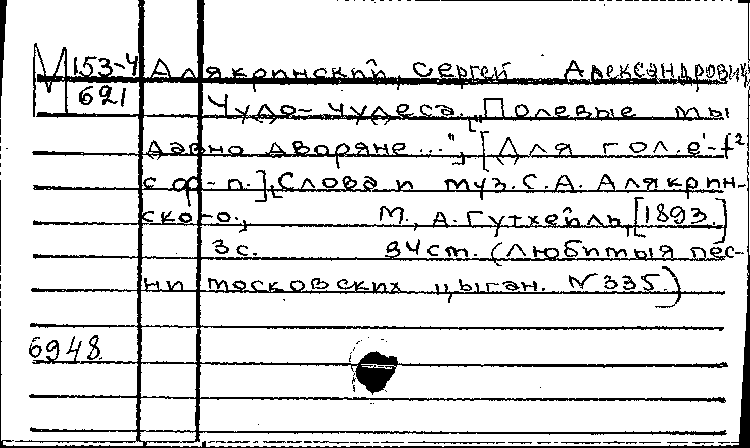 М 153-4 Алякринский, Сергей Александрович
621 Чудо-чудеса. "Полевые мы
давно дворяне...", [Для гол. e'-f²
с ф-п.], Слова и муз. С.А. Алякрин-
ского., М., А. Гутхейль, [1893.]
3с. 34см. (Любимыя пес-
ни московских цыган. N 335.)
6948.